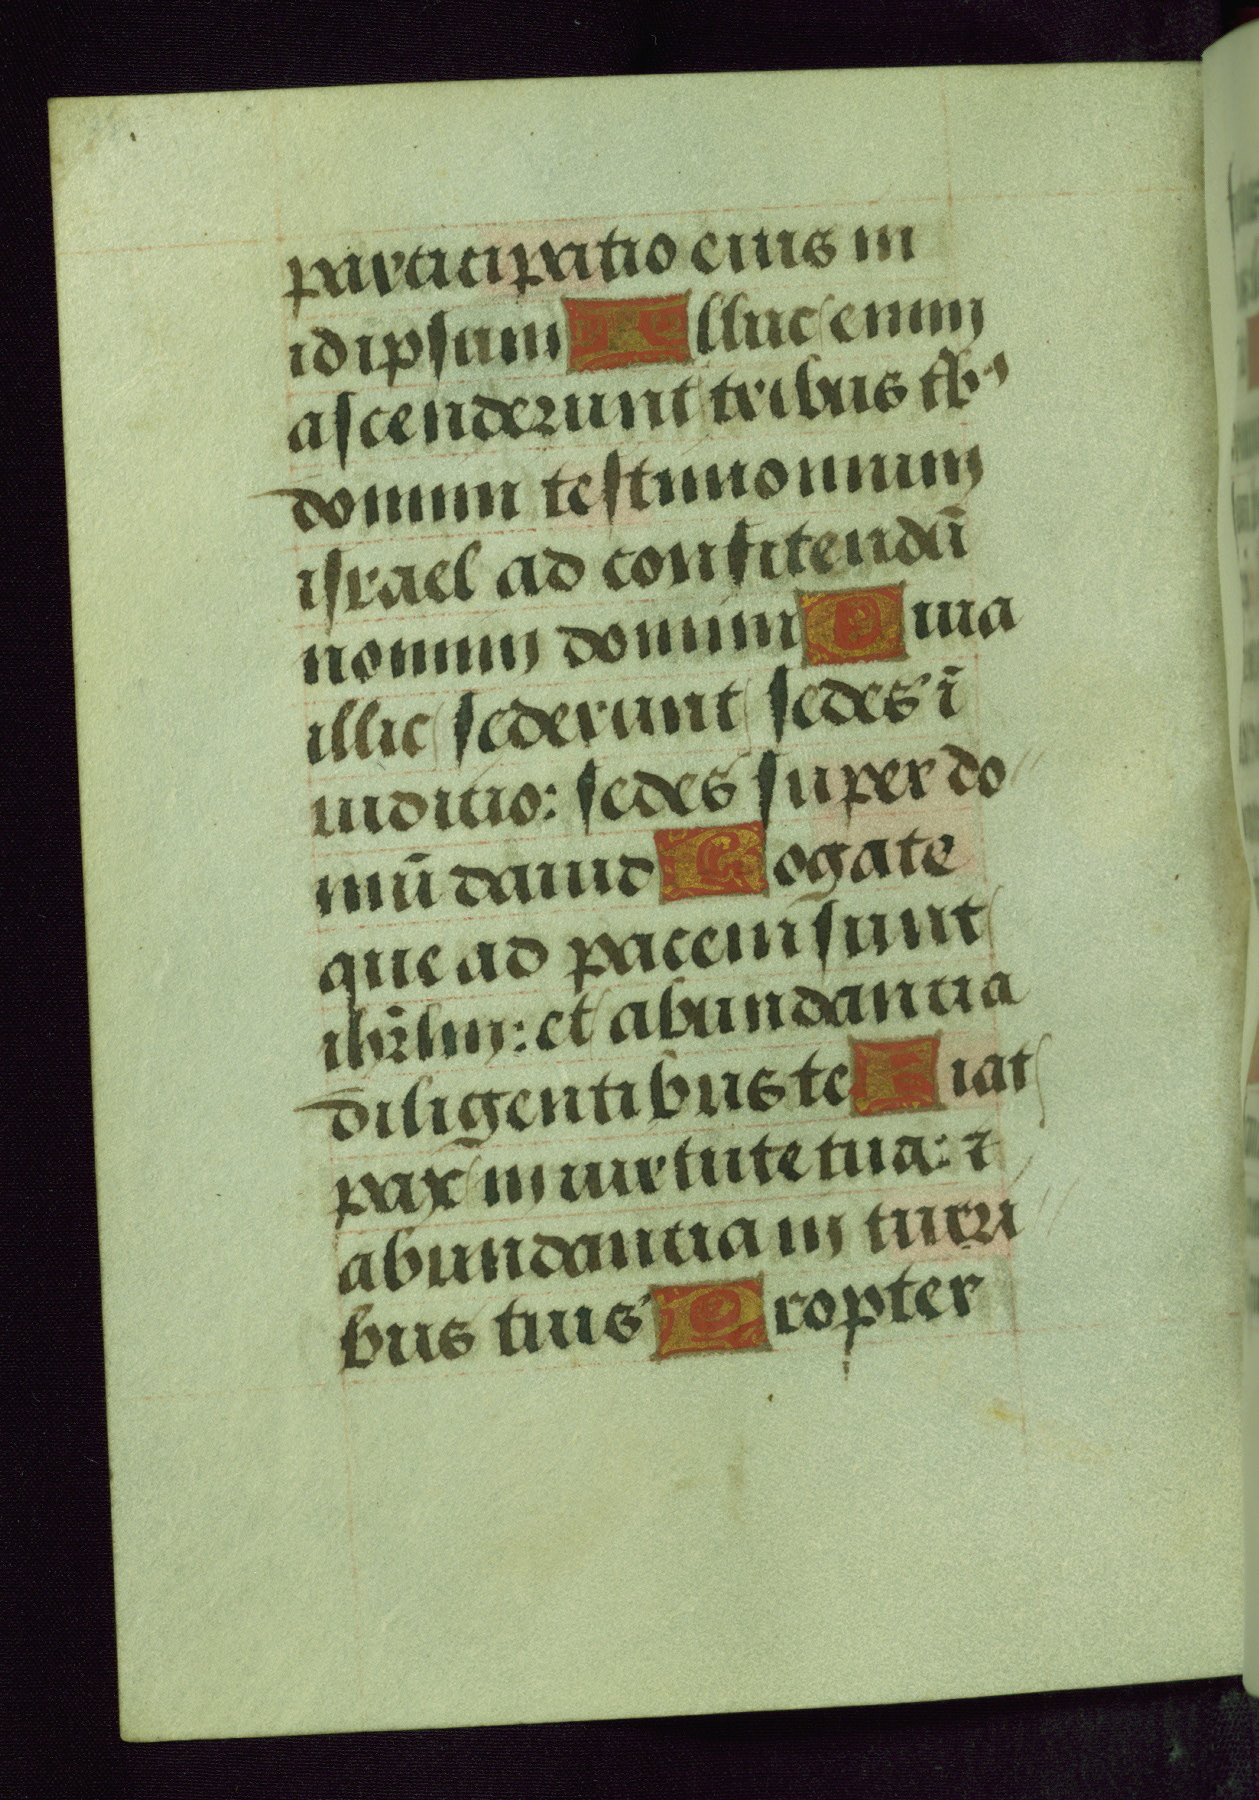 participatio eius in
idipsum Illuc enim
ascenderunt tribus tbꝰ
domini testimonium
israel ad confitendū
nomini domini Quia
illic sederunt sedes ī
iudicio: sedes super do
mū dauid Rogate
que ad pacem sunt
ihrl̄m: et abundantia
diligentibus te Fiat
pax in uirtute tua: ⁊
abundantia in turri
bus tuis Propter